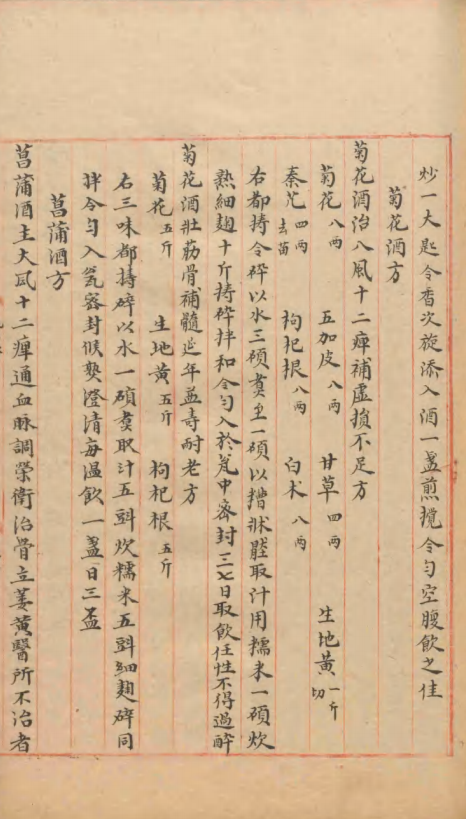 炒一大匙令香次旋添入酒一盞煎攪令匀空腹飲之佳
菊花酒方
菊花酒治八風十二痺補虛損不足方
菊花八兩 五加皮八兩 甘草四兩 生地黃一斤切
秦艽四兩去苗 枸杞根八兩 白术八兩
右都擣令碎以水三碩煑至一碩以糟牀壓取汁用糯米一碩炊
熟細麹十斤擣碎拌和令匀入於瓮中密封三七日取飲任性不得過醉
菊花酒壯筋骨補髓延年益壽耐老方
菊花五斤 生地黃五斤 枸杞根五斤
右三味都擣碎以水一碩煑取汁五㪷炊糯米五㪷細麹碎同
拌令匀入瓮密封候熟澄清每温飲一盞日三盃
菖蒲酒方
菖蒲酒主大風十二痺通血脉調榮衛治骨立萎黃醫所不治者